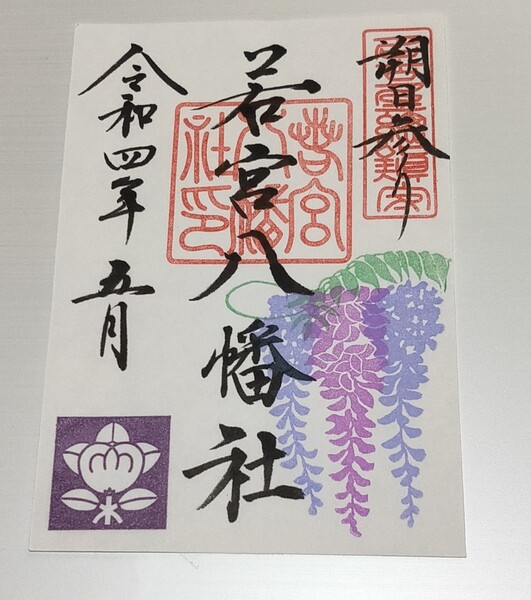 朔日参り
若宮八幡社
若宮八幡社印
令和四年五月